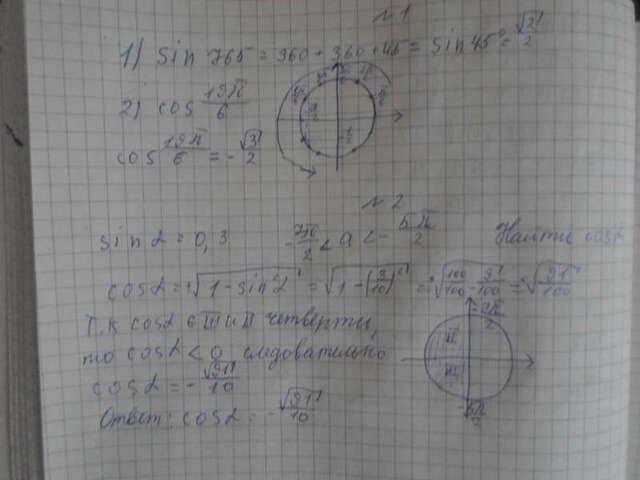 №1
1) sin 765 = 360 + 360 + 45 = sin 45° = √2/2
2) cos 19π/6
cos 19π/6 = - √3/2
№2
sin α = 0,3 - 7π/2 < α < - 5π/2 Найти cos α
cos α = √1 - sin²α = √1 - (3/10)² = √100/100 - 9/100 = √91/100
Т.к cos α в III и II четверти,
то cos α < 0 следовательно
cos α = - √91/10
Ответ: cos α = - √91/10
- 7π/2
II
III
- 5π/2